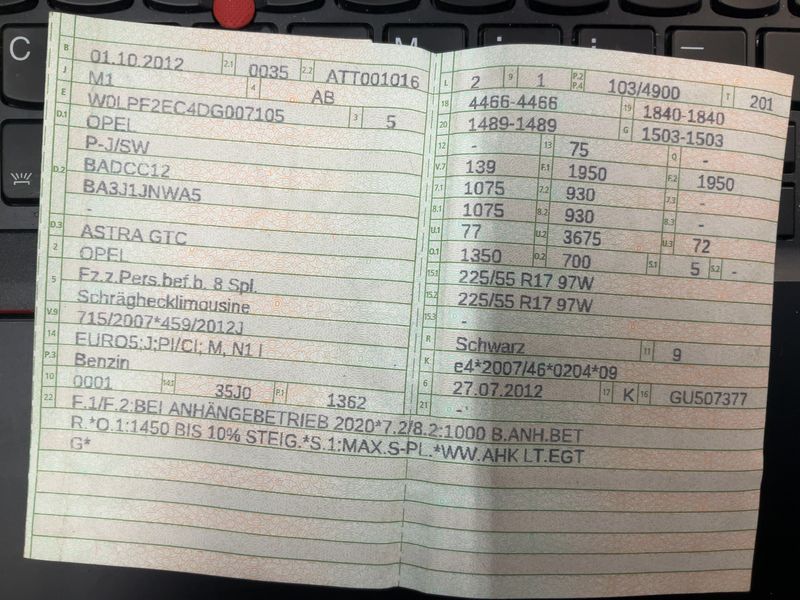 B 01.10.2012 2.1 0035 2.2 ATT001016
J M1 4 AB
E W0LPF2EC4DG007105 3 5
D.1 OPEL
P-J/SW
D.2 BADCC12
BA3J1JNWA5
-
D.3 ASTRA GTC
2 OPEL
5 Fz.z.Pers.bef.b. 8 Spl.
Schräghecklimousine
V.9 715/2007*459/2012J
14 EURO5;J;PI/CI; M, N1 I
P.3 Benzin
10 0001 14.1 35J0 P.1 1362
L 2 9 1 P.2 P.4 103/4900 T 201
18 4466-4466 19 1840-1840
20 1489-1489 G 1503-1503
12 - 13 75 Q -
V.7 139 F.1 1950 F.2 1950
7.1 1075 7.2 930 7.3 -
8.1 1075 8.2 930 8.3 -
U.1 77 U.2 3675 U.3 72
O.1 1350 O.2 700 S.1 5 S.2 -
15.1 225/55 R17 97W
15.2 225/55 R17 97W
15.3 -
R Schwarz 11 9
K e4*2007/46*0204*09
6 27.07.2012 17 K 16 GU507377
21 -
22 F.1/F.2:BEI ANHÄNGEBETRIEB 2020*7.2/8.2:1000 B.ANH.BET
R.*O.1:1450 BIS 10% STEIG.*S.1:MAX.S-PL.*WW.AHK LT.EGT
G*
C M i i —